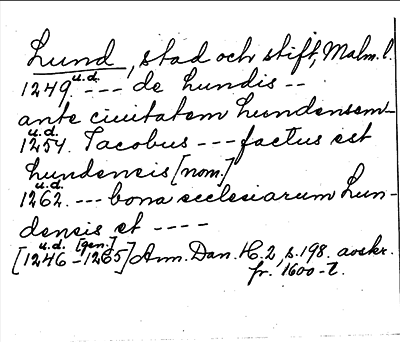 Lund, stad och stift, Malm. l.
1249 u.d. --- de Lundis --
ante ciuitatem Lundensem-
1254. u.d. Jacobus --- factus est
Lundensis [nom.]
1262. u.d. --- bona ecclesiarum Lun-
densis et ----
[1246-1265] u.d. [gen.] Ann. Dan. H. 2, s. 198. avskr.
fr. 1600-t.